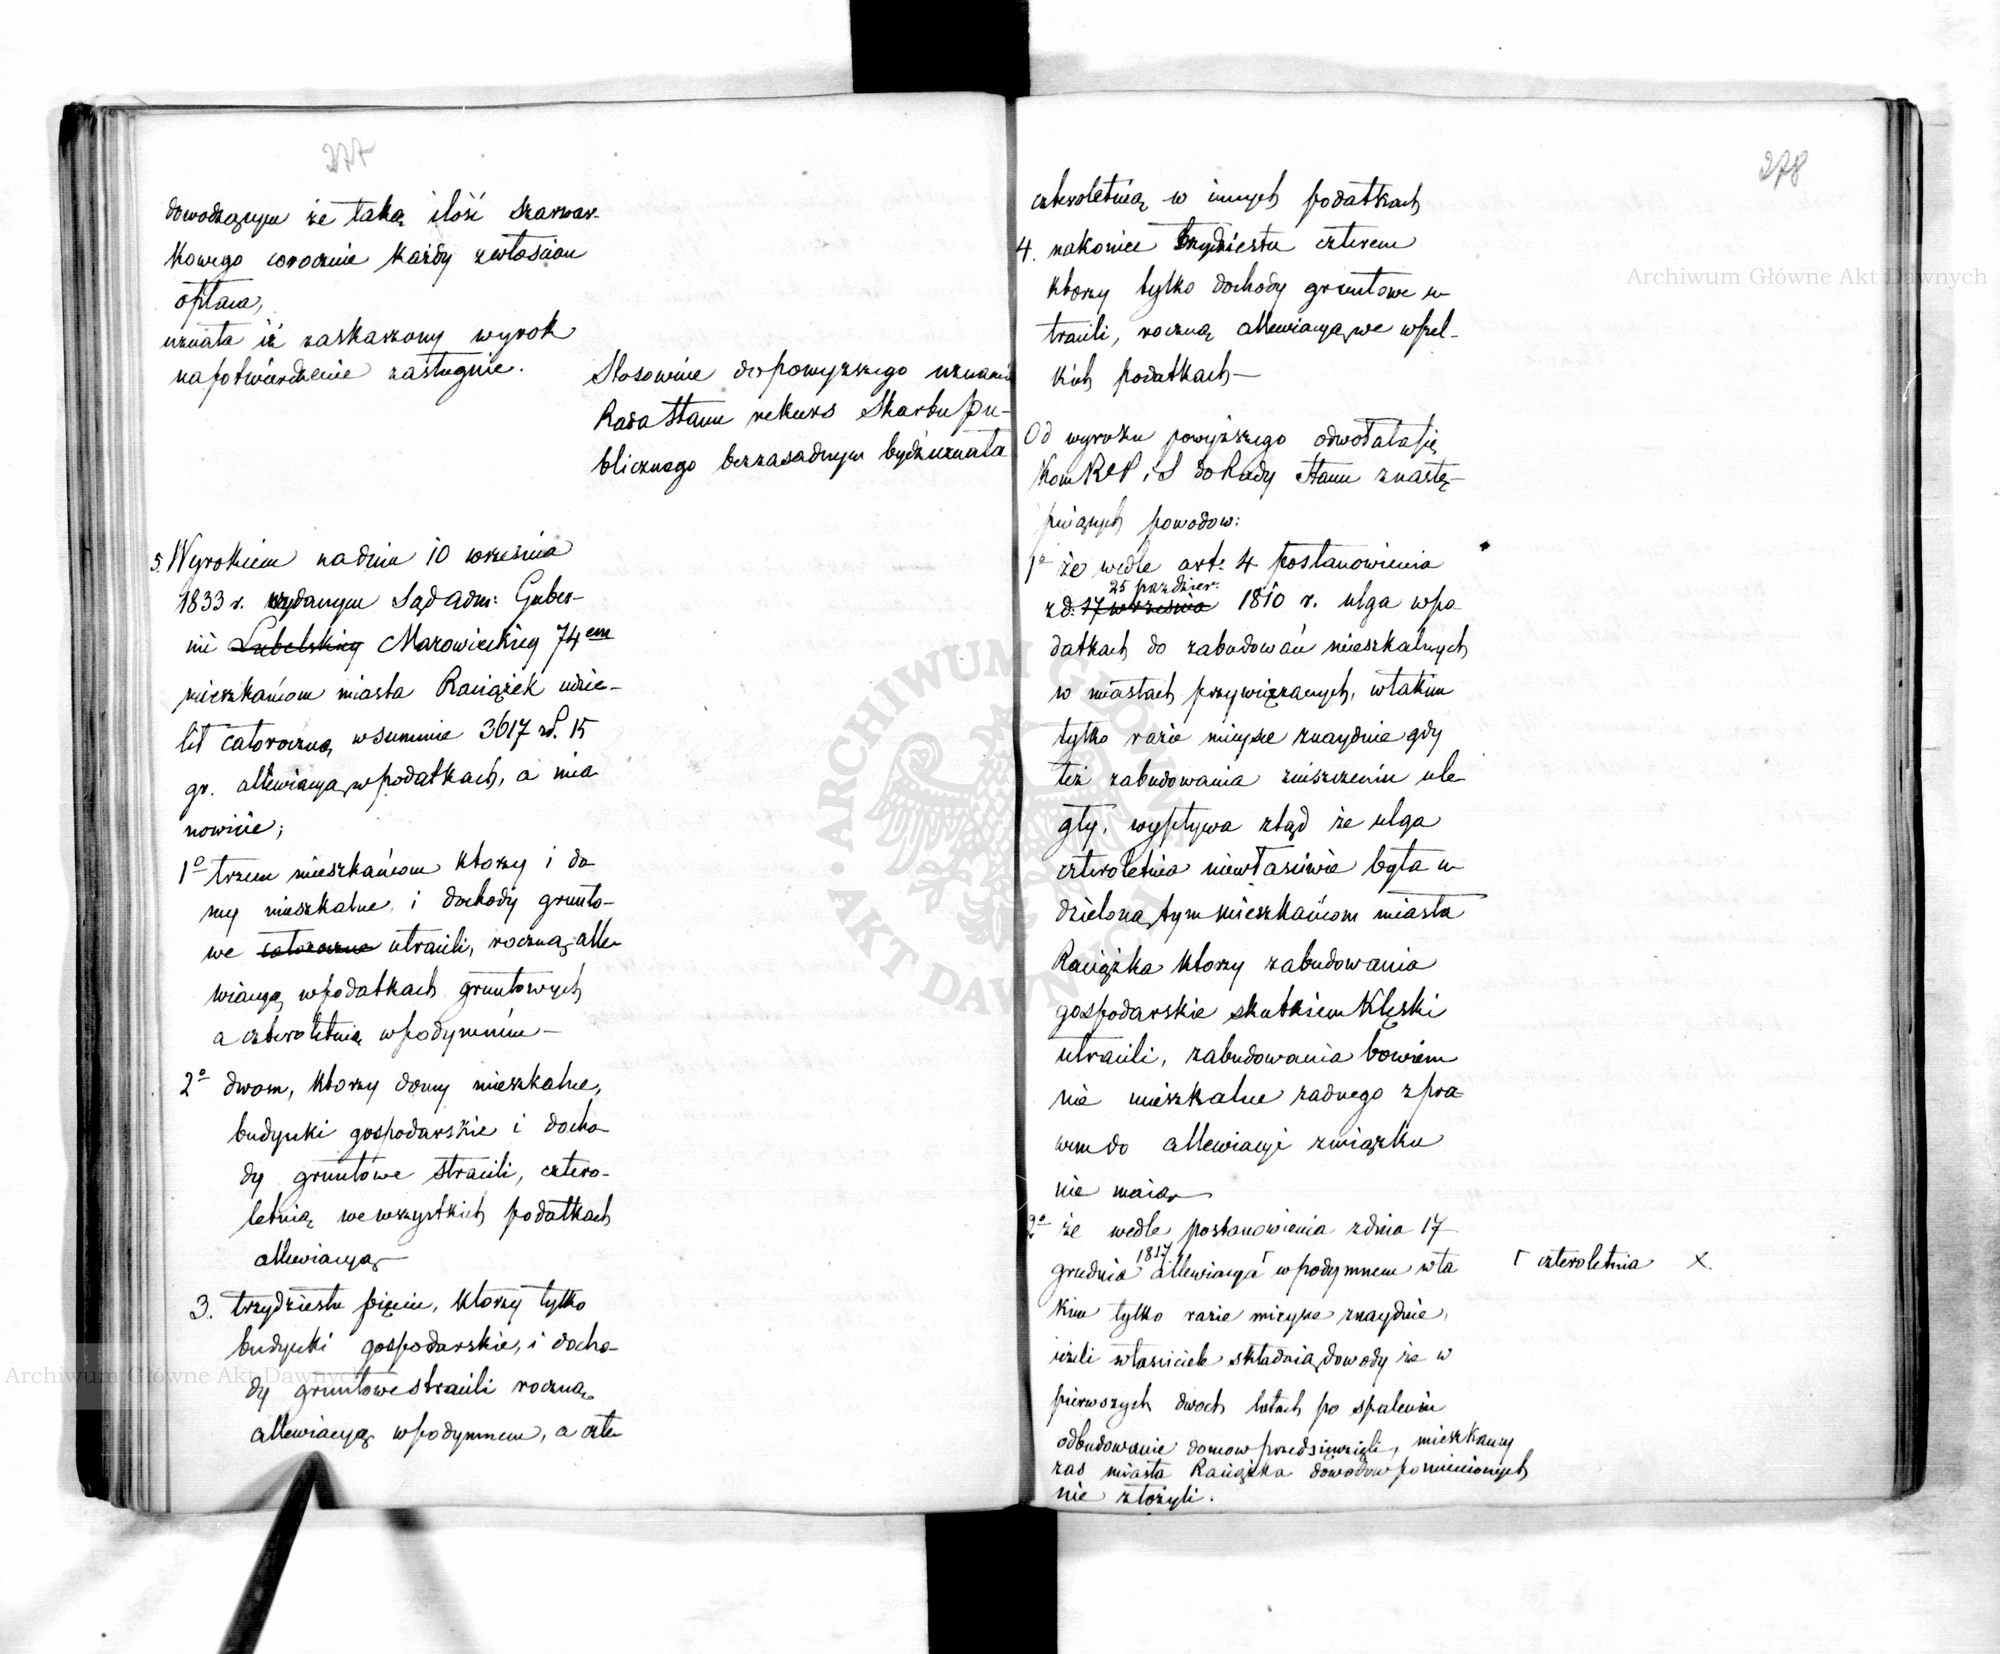 277
dowodzącym że taką ilość szarwar-
kowego corocznie każdy z włościan
opłaca,
uznała iż zaskarżony wyrok
na potwierdzenie zasługuie.
Stosownie do powyższego uznania
Rada Stanu rekurs Skarbu pu-
blicznego bezzasadnym bydź uznała
5. Wyrokiem na dniu 10 września
1833 r. wydanym Sąd Adm: Guber-
nii Lubelskiey Mazowieckiey 74em
mieszkańcom miasta Raciążek udzie-
lił całoroczną w summie 3617 zł. 15
gr. allewiacyą w podatkach, a mia
nowicie;
1o trzem mieszkańcom ktorzy i do
my mieszkalne i dochody grunto-
we całoroczne utracili, roczną alle
wiacyą w podatkach gruntowych
a czteroletnią w podymném —
2o dwom, ktorzy domy mieszkalne,
budynki gospodarskie i docho-
dy gruntowe stracili, cztero-
letnią we wszystkich podatkach
allewiacyą —
3. trzydziestu pięciu, ktorzy tylko
budynki gospodarskie, i docho-
dy gruntowe stracili roczną
allewiacyą w podymnem, a czte
278
czteroletnią w innych podatkach
4. nakoniec trzydziestu czterem
ktorzy tylko dochody gruntowe u-
tracili, roczną allewiacyą we wszel-
kich podatkach —
Od wyroku powyższego odwołała się
Kom RPiS do Rady Stanu z nastę-
puiących powodow:
1o że wedle art: 4 postanowienia
25 paździer:
z d: 17 września 1810 r. ulga w po
datkach do zabudowań mieszkalnych
w miastach przywiązanych, w takim
tylko razie mieysce znayduie gdy
też zabudowania zniszczeniu ule
gły, wypływa ztąd że ulga
czteroletnia niewłaściwie była u-
dzieloną tym mieszkańcom miasta
Raciążka ktorzy zabudowania
gospodarskie skutkiem klęski
utracili, zabudowania bowiem
nie mieszkalne żadnego z pra
wem do allewiacyi związku
nie maią —
2o że wedle postanowienia z dnia 17
grudnia 1817 allewiacya ꓩ w podymnem w ta
Γ czteroletnia X.
kim tylko razie mieysce znayduie,
ieżeli właściciele składaią dowody że w
pierwszych dwoch latach po spaleniu
odbudowanie domow przedsięwzięli, mieszkańcy
zaś miasta Raciążka dowodow pomienionych
nie złożyli.
Archiwum Główne Akt Dawnych
Archiwum Główne Akt Dawnych
ARCHIWUM GŁÓWNE AKT DAWNYCH